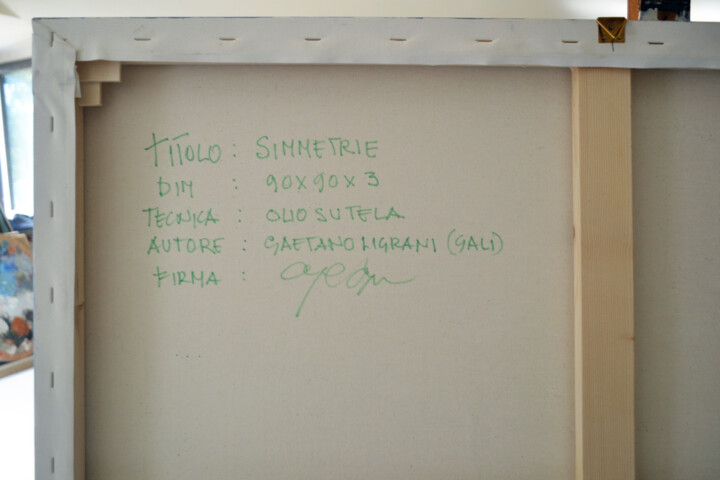 TITOLO : SIMMETRIE
DIM : 90x90x3
TECNICA : OLIO SU TELA
AUTORE : GAETANO LIGRANI (GALI)
FIRMA :